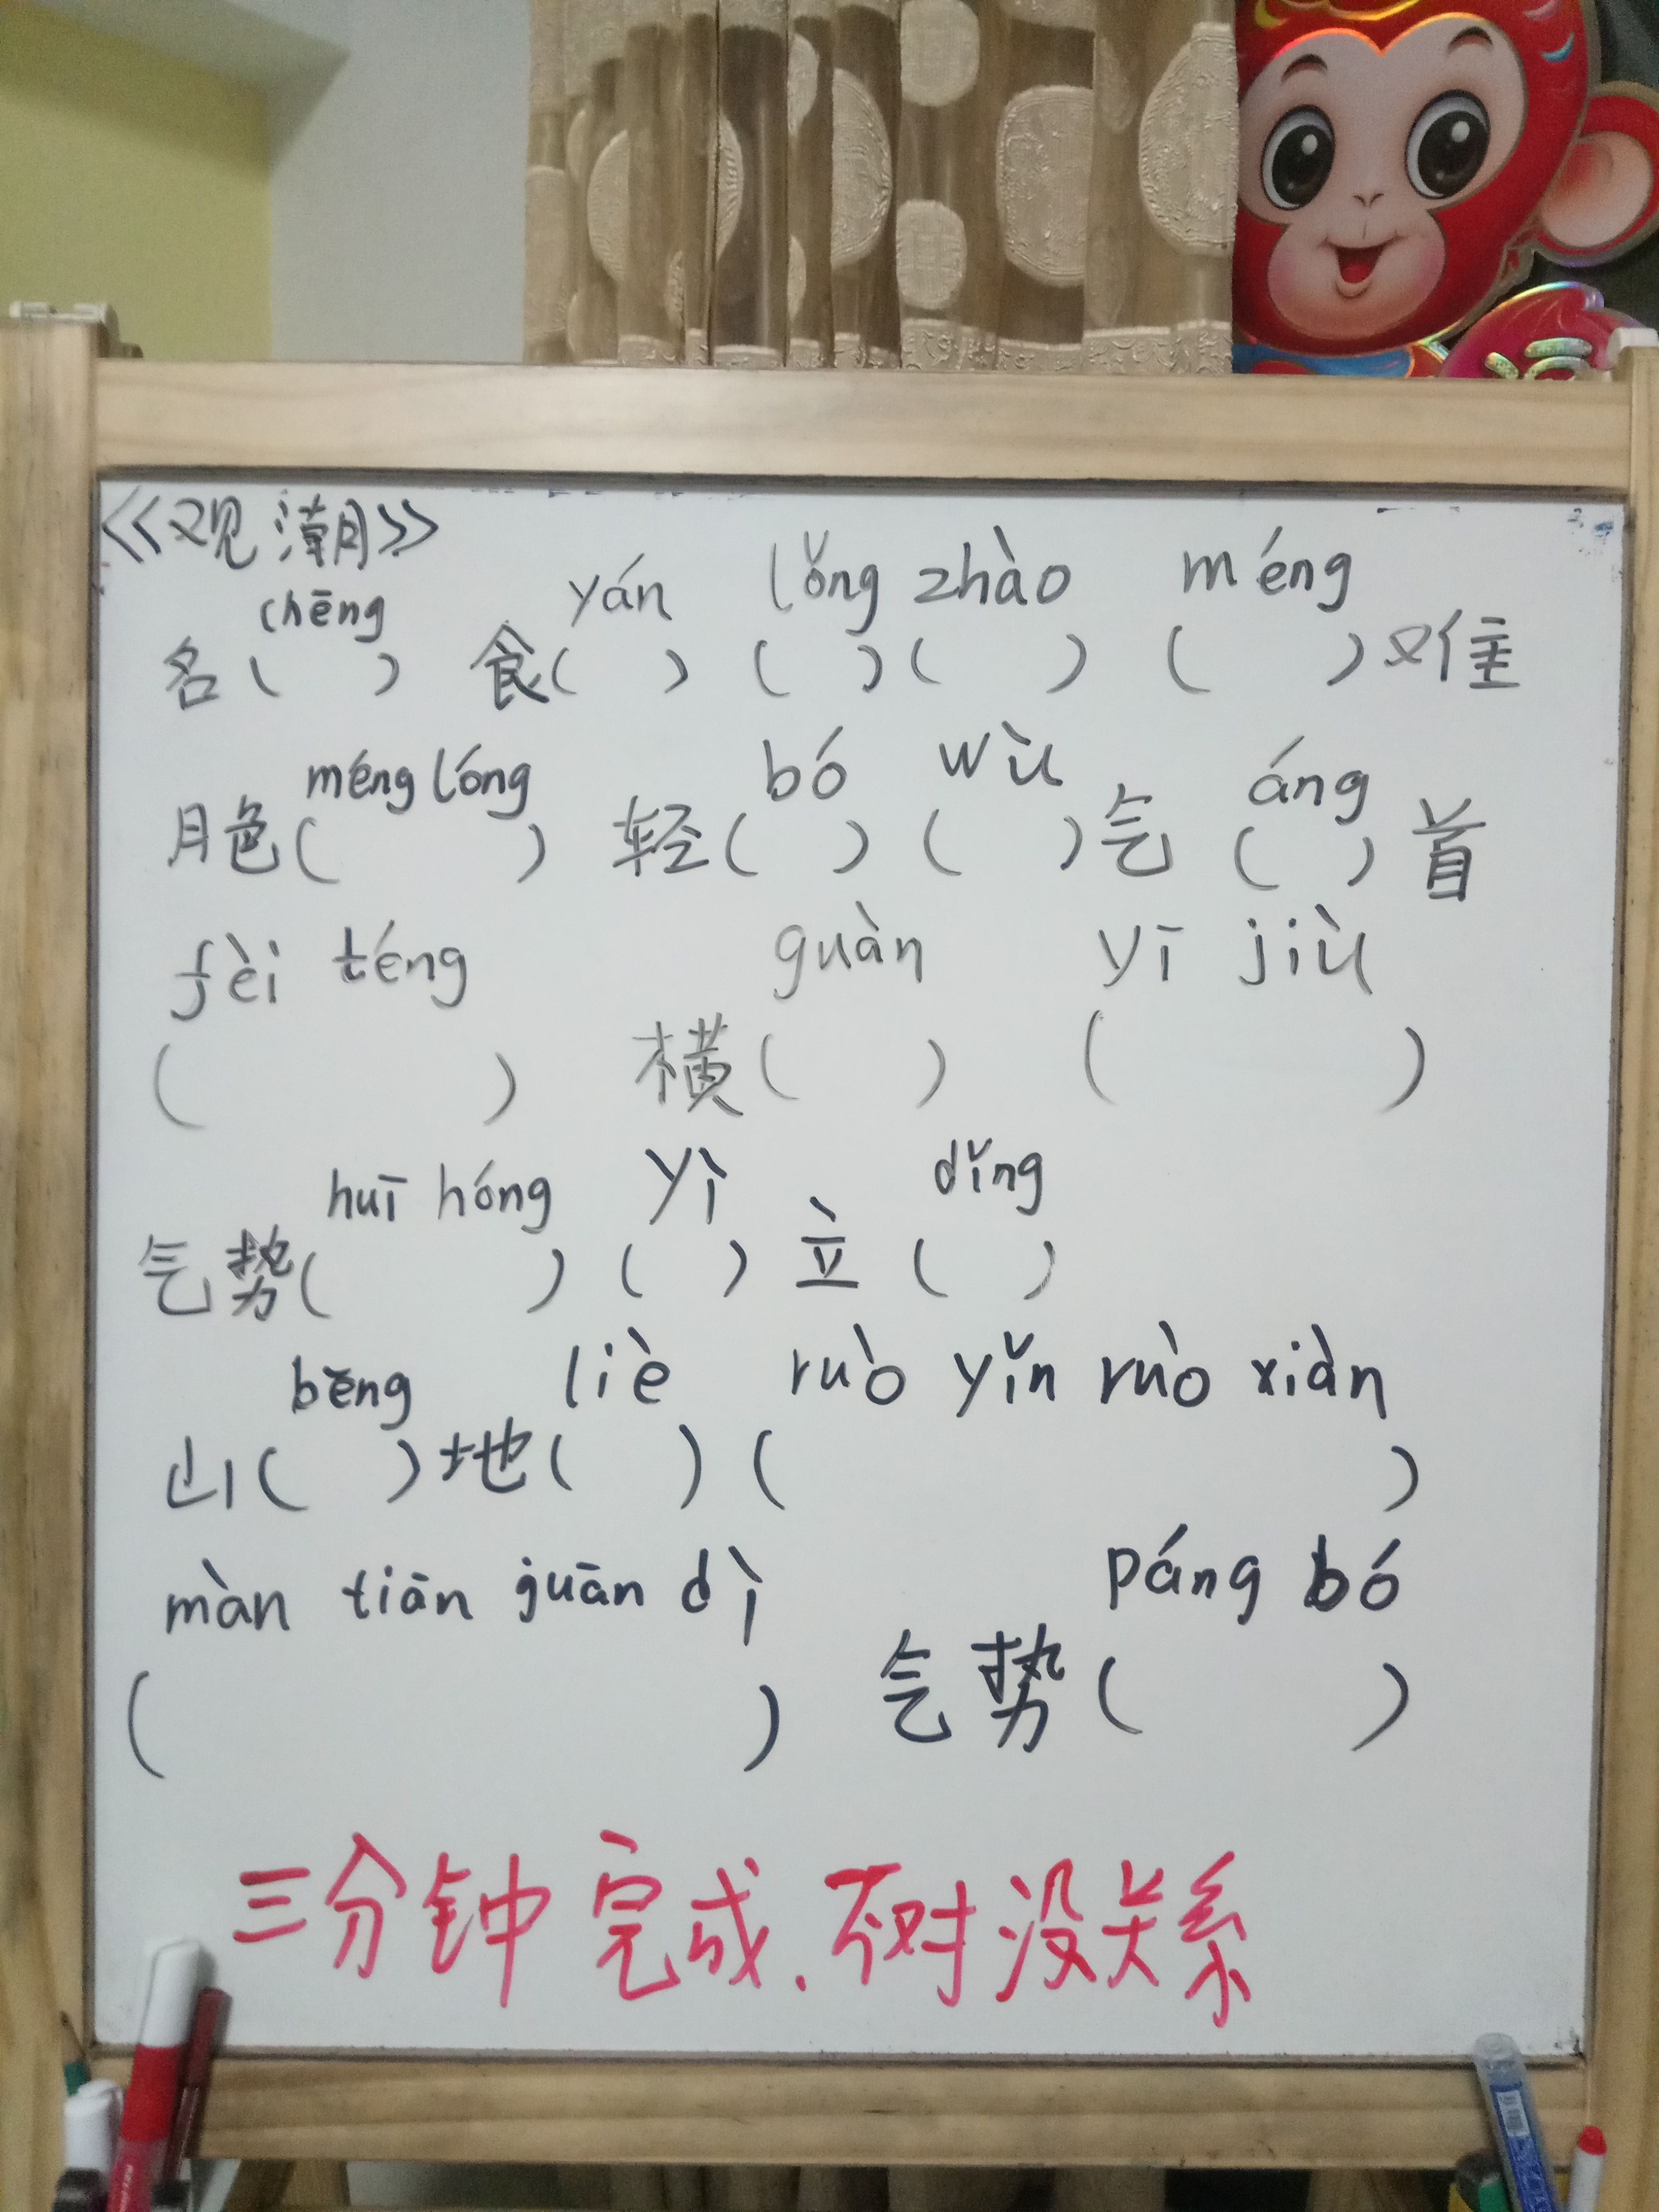 《观潮》
chēng yán lǒng zhào méng
名( ) 食( ) ( )( ) ( )难
méng lóng bó wù áng
月色( ) 轻( ) ( )气 ( )首
fèi téng guàn yī jiù
( ) 横( ) ( )
huī hóng yì dǐng
气势( ) ( )立( )
bēng liè ruò yǐn ruò xiàn
山( )地( ) ( )
màn tiān juān dì páng bó
( ) 气势( )
三分钟完成.不对没关系